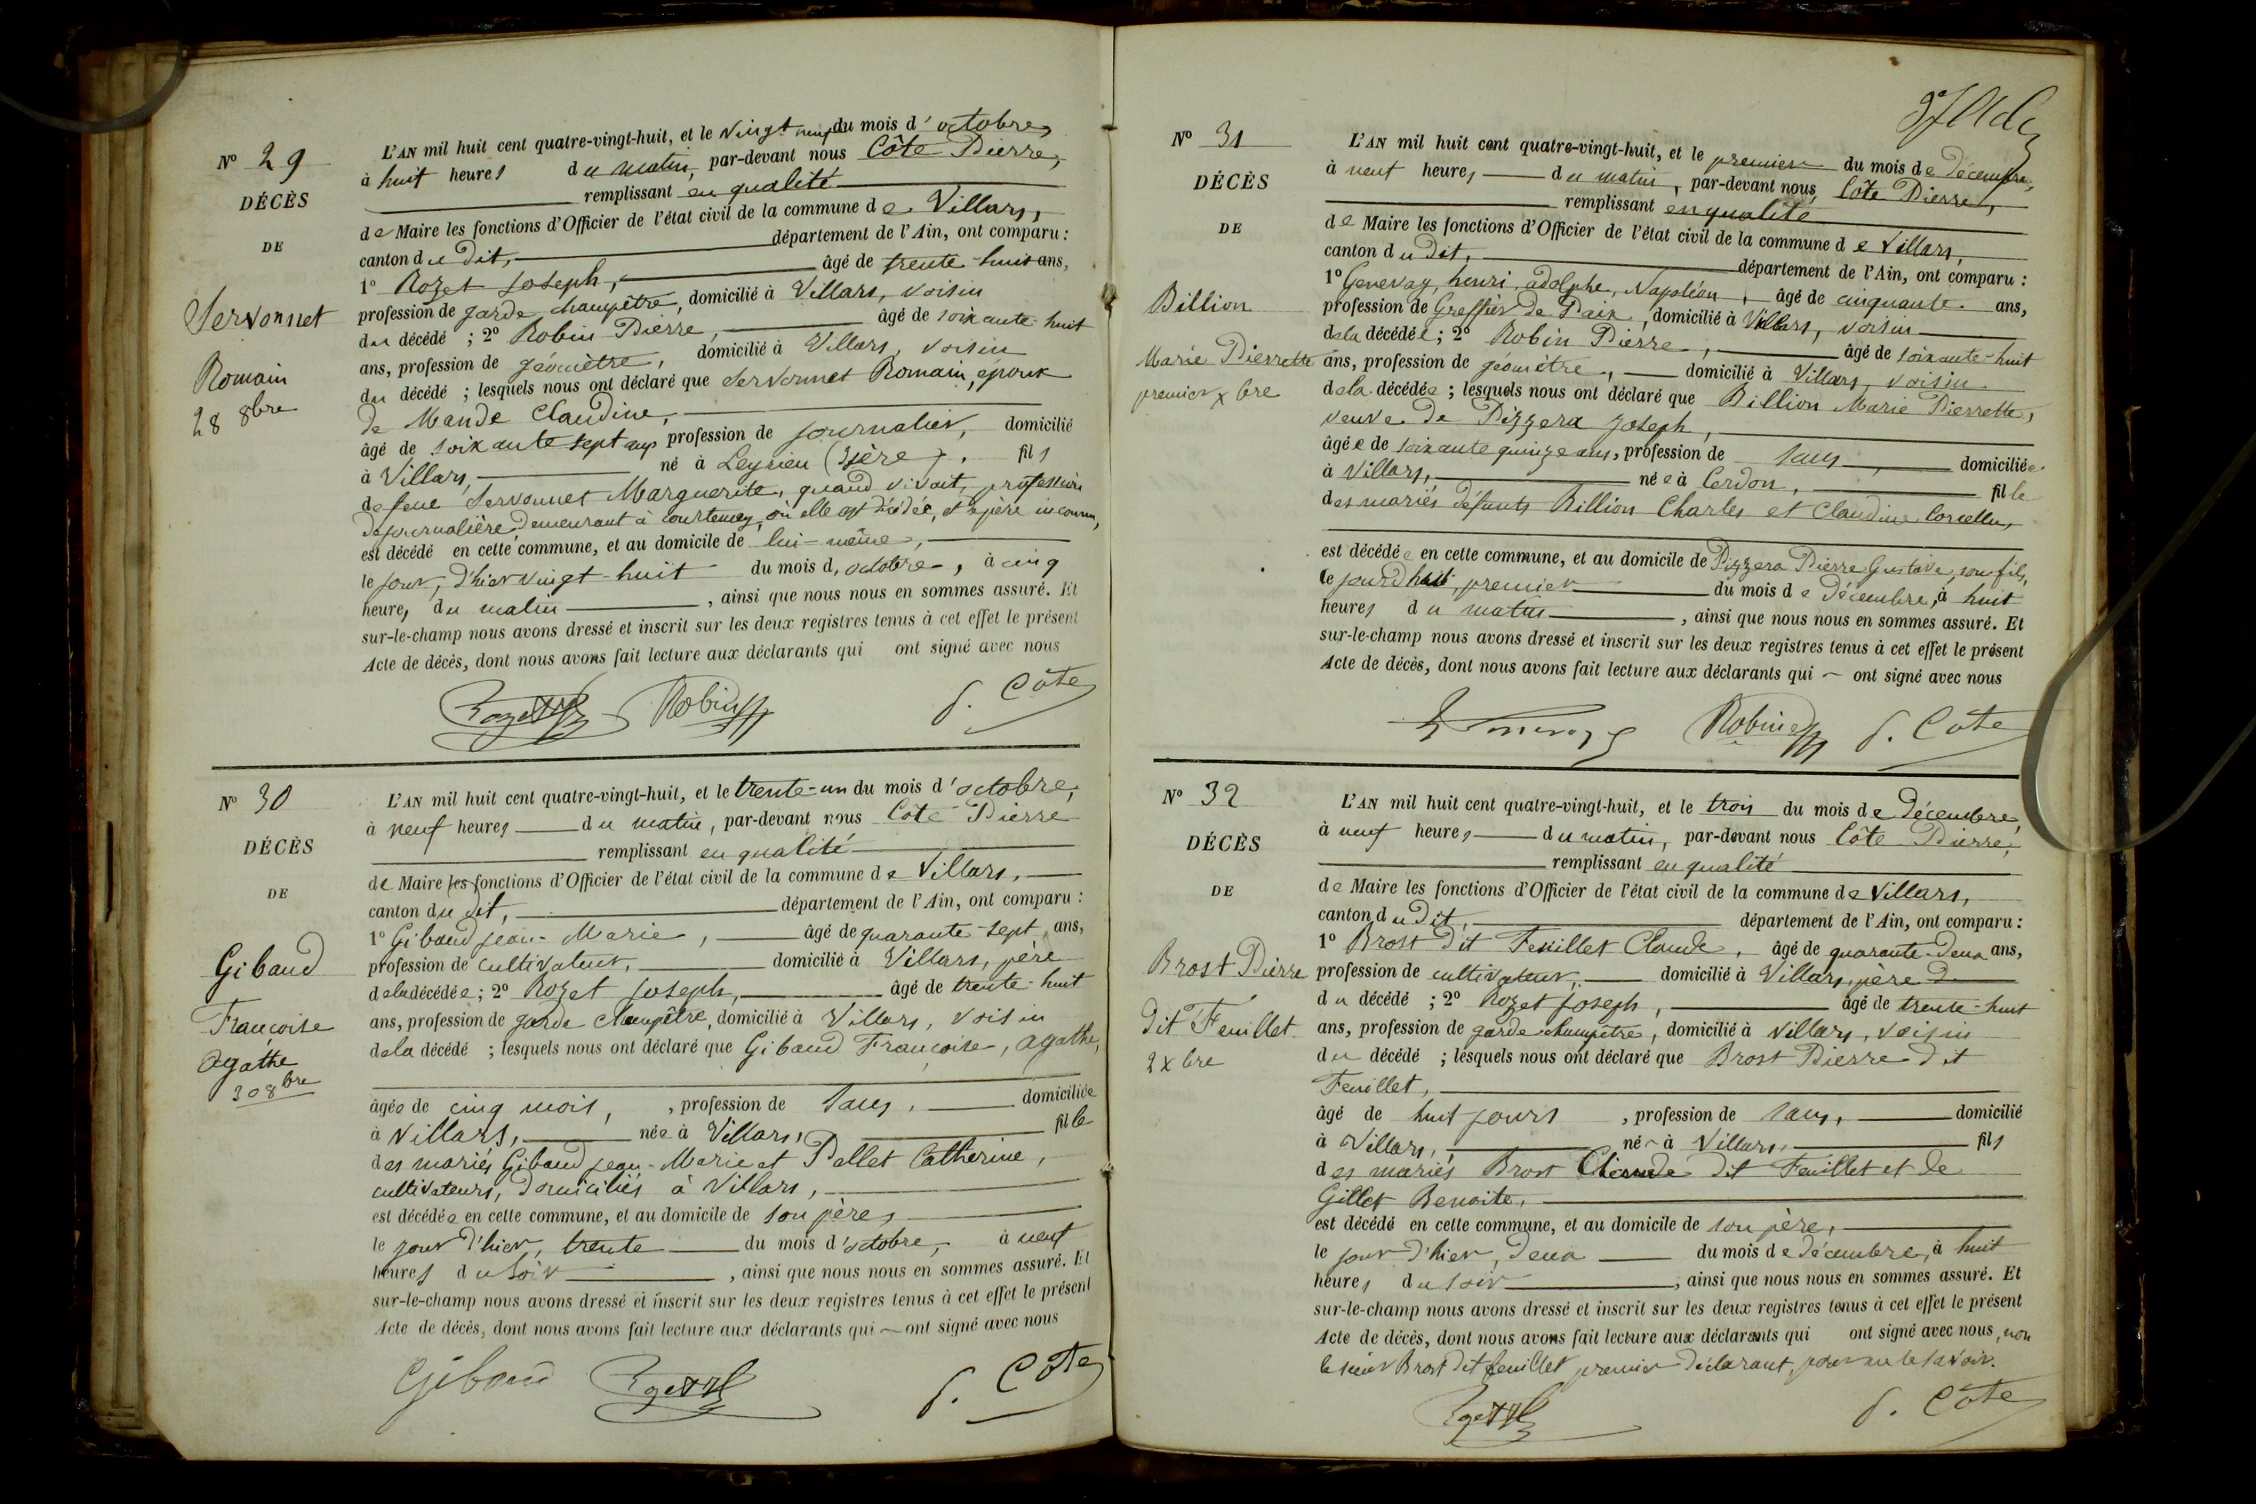 Nº 29
DÉCÈS
DE
Servonnet
Romain
28 8bre
L'AN mil huit cent quatre-vingt-huit, et le vingt neuf du mois d'octobre,
à huit heures du matin, par-devant nous Côte Pierre,
remplissant en qualité
de Maire les fonctions d'Officier de l'état civil de la commune de Villars,
canton du dit, département de l'Ain, ont comparu :
1º Rozet Joseph, âgé de trente-huit ans,
profession de garde champêtre, domicilié à Villars, voisin
du décédé ; 2º Robin Pierre, âgé de soixante-huit
ans, profession de géomètre, domicilié à Villars, voisin
du décédé ; lesquels nous ont déclaré que Servonnet Romain, époux
de Mande Claudine,
âgé de soixante sept ans profession de journalier, domicilié
à Villars, né à Leyrieu (Isère), fils
de feue Servonnet Marguerite, quand vivait, profession
de journalière, demeurant à Courtenay, où elle est décédée, et de père inconnu,
est décédé en cette commune, et au domicile de lui-même,
le jour, d'hier vingt-huit du mois d'octobre, à cinq
heures du matin, ainsi que nous nous en sommes assuré. Et
sur-le-champ nous avons dressé et inscrit sur les deux registres tenus à cet effet le présent
Acte de décès, dont nous avons fait lecture aux déclarants qui ont signé avec nous
Rozet Robin P. Côte
Nº 30
DÉCÈS
DE
Gibaud
Françoise
Agathe
30 8bre
L'AN mil huit cent quatre-vingt-huit, et le trente-un du mois d'octobre,
à neuf heures du matin, par-devant nous Côte Pierre
remplissant en qualité
de Maire les fonctions d'Officier de l'état civil de la commune de Villars,
canton du dit, département de l'Ain, ont comparu :
1º Gibaud Jean-Marie, âgé de quarante-sept ans,
profession de cultivateur, domicilié à Villars, père
de la décédée ; 2º Rozet Joseph, âgé de trente-huit
ans, profession de garde champêtre, domicilié à Villars, voisin
de la décédé ; lesquels nous ont déclaré que Gibaud Françoise, Agathe,
âgée de cinq mois, , profession de sans, domiciliée
à Villars, née à Villars, fille
des mariés Gibaud Jean-Marie et Pellet Catherine,
cultivateurs, domiciliés à Villars,
est décédée en cette commune, et au domicile de son père,
le jour d'hier, trente du mois d'octobre, à neuf
heures du soir, ainsi que nous nous en sommes assuré. Et
sur-le-champ nous avons dressé et inscrit sur les deux registres tenus à cet effet le présent
Acte de décès, dont nous avons fait lecture aux déclarants qui ont signé avec nous
Gibaud Rozet P. Côte
Nº 31
DÉCÈS
DE
Billion
Marie Pierrette
premier Xbre
L'AN mil huit cent quatre-vingt-huit, et le premier du mois de Décembre,
à neuf heures du matin, par-devant nous Côte Pierre,
remplissant en qualité
de Maire les fonctions d'Officier de l'état civil de la commune de Villars,
canton du dit, département de l'Ain, ont comparu :
1º Genevay, henri, adolphe, Napoléon, âgé de cinquante ans,
profession de Greffier de Paix, domicilié à Villars, voisin
de la décédée ; 2º Robin Pierre, âgé de soixante-huit
ans, profession de géomètre, domicilié à Villars, voisin
de la décédée ; lesquels nous ont déclaré que Billion Marie Pierrette,
veuve de Pizzera Joseph,
âgée de soixante quinze ans, profession de sans, domiciliée
à Villars, née à Cerdon, fille
des mariés défunts Billion Charles et Claudine Corcellu,
est décédée en cette commune, et au domicile de Pizzera Pierre Gustave, son fils,
le jourdhui, premier du mois de Décembre, à huit
heures du matin, ainsi que nous nous en sommes assuré. Et
sur-le-champ nous avons dressé et inscrit sur les deux registres tenus à cet effet le présent
Acte de décès, dont nous avons fait lecture aux déclarants qui ont signé avec nous
Robin P. Côte
Nº 32
DÉCÈS
DE
Brost Pierre
dit Feuillet
2 Xbre
L'AN mil huit cent quatre-vingt-huit, et le trois du mois de Décembre,
à neuf heures du matin, par-devant nous Côte Pierre,
remplissant en qualité
de Maire les fonctions d'Officier de l'état civil de la commune de Villars,
canton du dit, département de l'Ain, ont comparu :
1º Brost dit Feuillet Claude, âgé de quarante-deux ans,
profession de cultivateur, domicilié à Villars, père d
du décédé ; 2º Rozet Joseph, âgé de trente-huit
ans, profession de garde champêtre, domicilié à Villars, voisin
du décédé ; lesquels nous ont déclaré que Brost Pierre dit
Feuillet,
âgé de huit jours, profession de sans, domicilié
à Villars, né à Villars, fils
des mariés Brost Claude dit Feuillet et de
Gillet Benoite,
est décédé en cette commune, et au domicile de son père,
le jour d'hier, deux du mois de décembre, à huit
heures du soir, ainsi que nous nous en sommes assuré. Et
sur-le-champ nous avons dressé et inscrit sur les deux registres tenus à cet effet le présent
Acte de décès, dont nous avons fait lecture aux déclarants qui ont signé avec nous, non
le sieur Brost dit feuillet premier déclarant, pour ne le savoir.
Rozet P. Côte